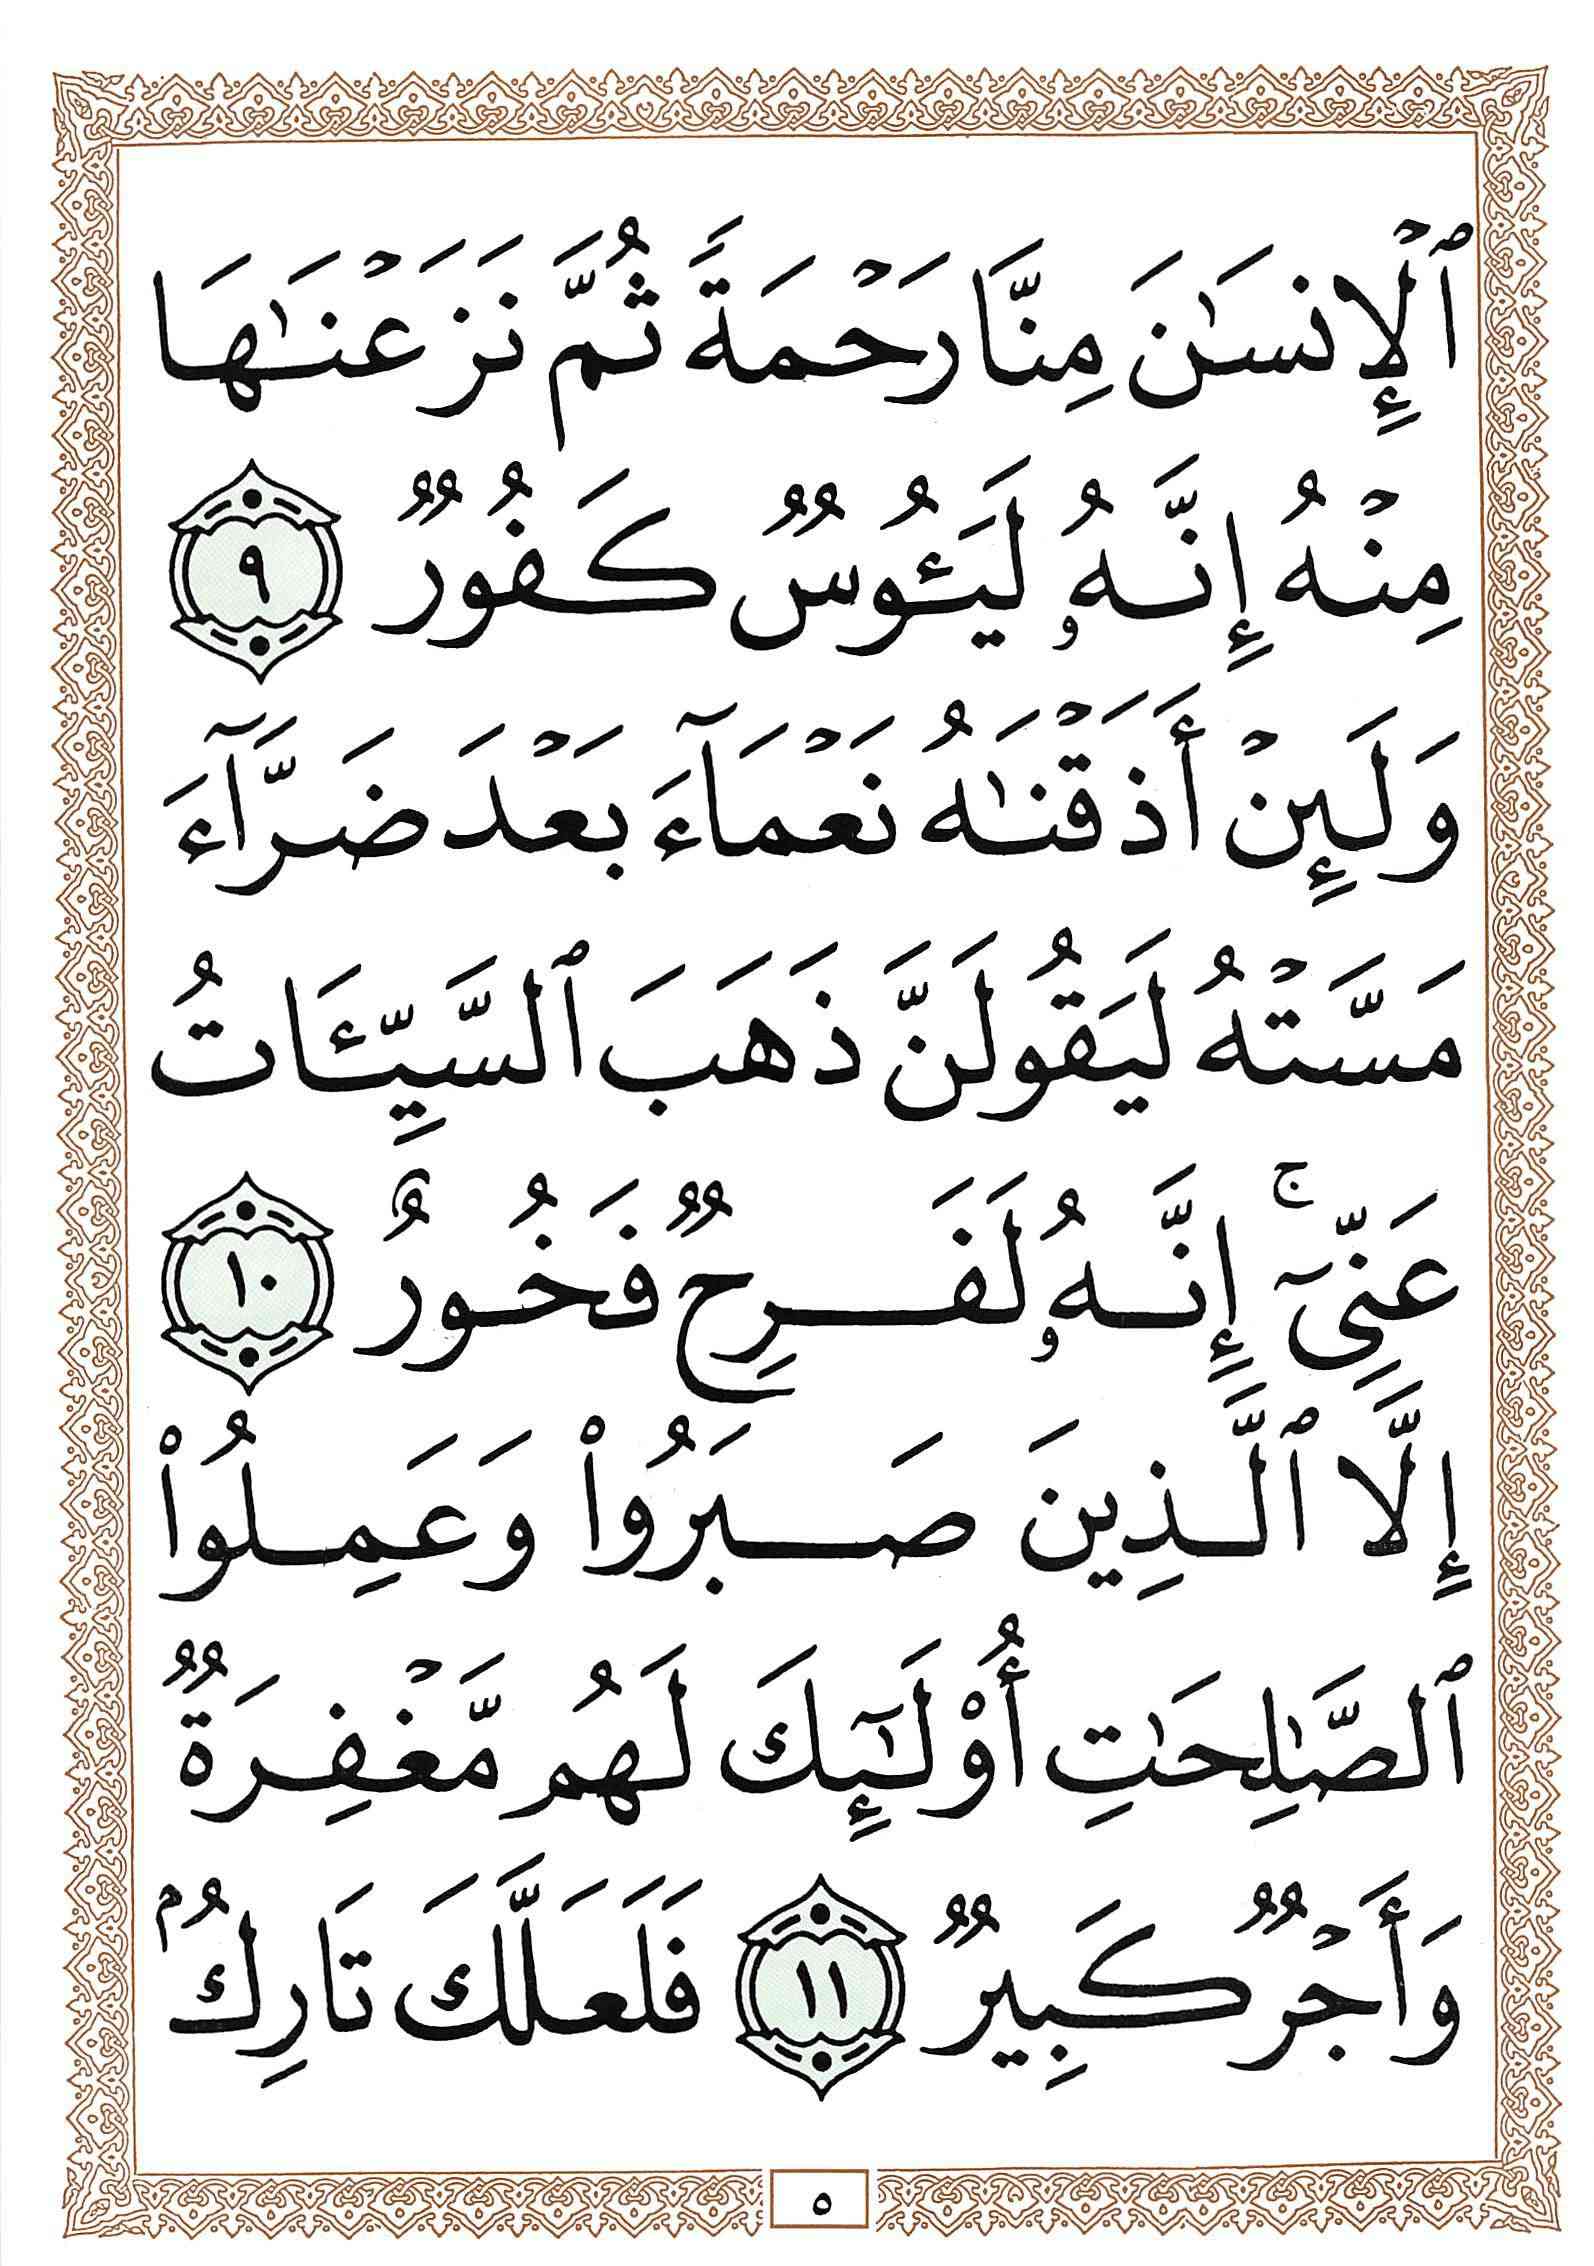 ٱلۡإِنسَٰنَ مِنَّا رَحۡمَةٗ ثُمَّ نَزَعۡنَٰهَا
مِنۡهُ إِنَّهُۥ لَيَـُٔوسٞ كَفُورٞ ٩
وَلَئِنۡ أَذَقۡنَٰهُ نَعۡمَآءَ بَعۡدَ ضَرَّآءَ
مَسَّتۡهُ لَيَقُولَنَّ ذَهَبَ ٱلسَّيِّـَٔاتُ
عَنِّيٓۚ إِنَّهُۥ لَفَرِحٞ فَخُورٌ ١٠
إِلَّا ٱلَّذِينَ صَبَرُواْ وَعَمِلُواْ
ٱلصَّٰلِحَٰتِ أُوْلَٰٓئِكَ لَهُم مَّغۡفِرَةٞ
وَأَجۡرٞ كَبِيرٞ ١١ فَلَعَلَّكَ تَارِكُۢ
٥